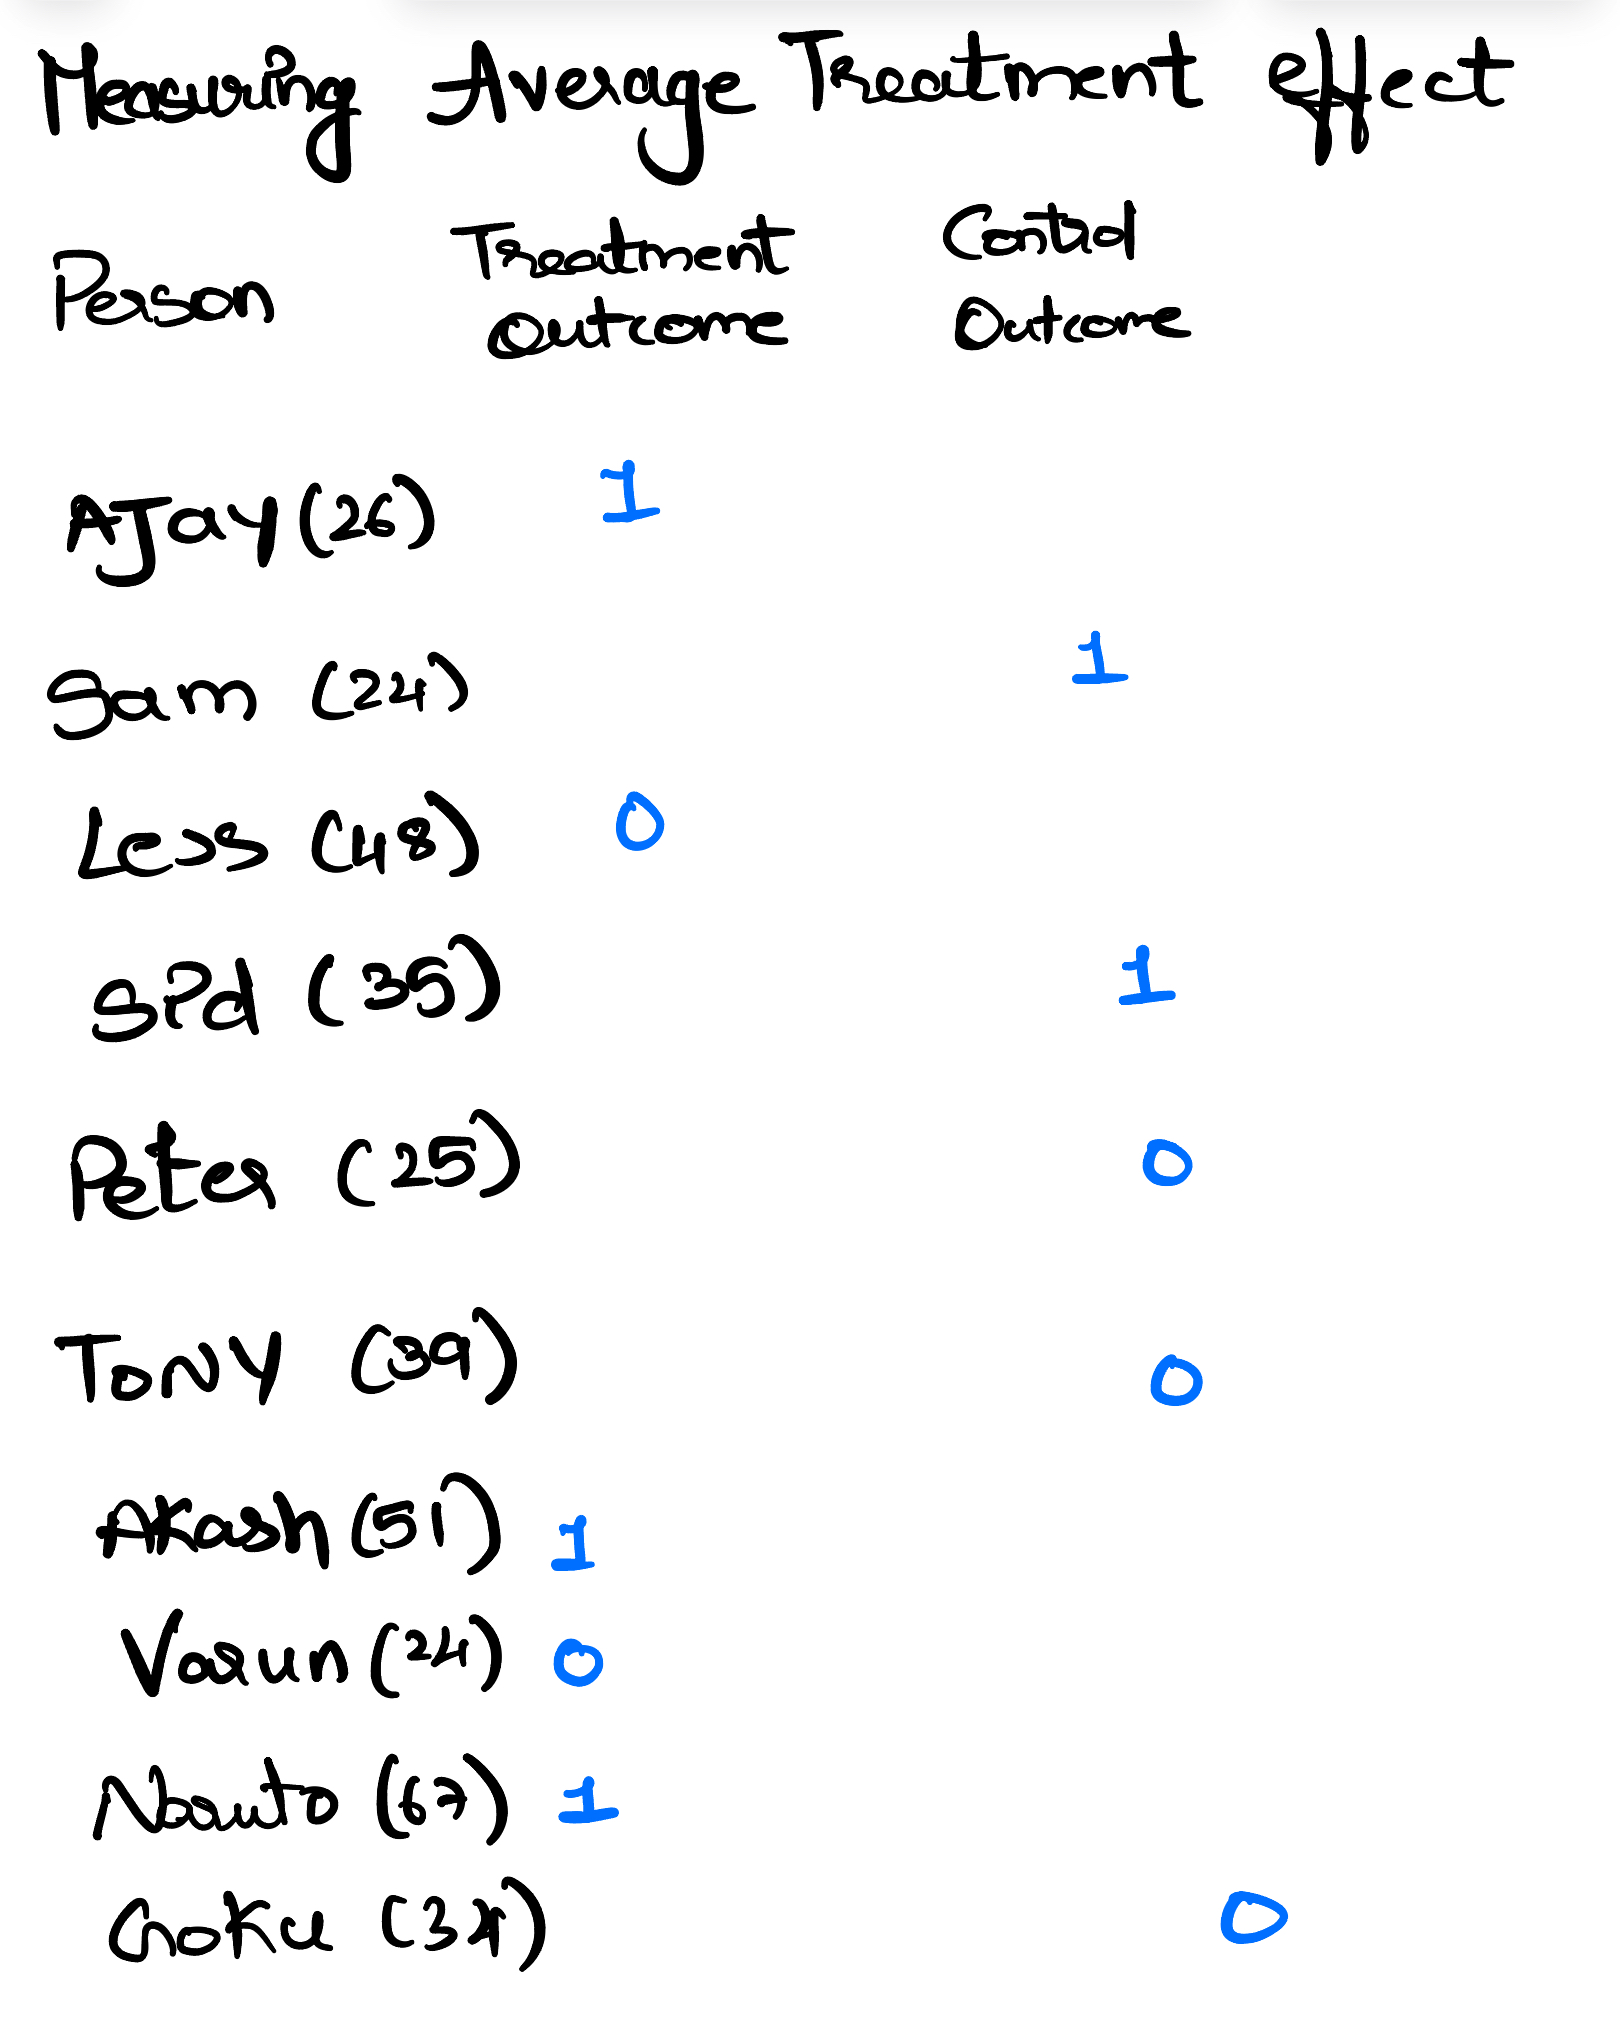 Measuring Average Treatment effect
Person Treatment Outcome Control Outcome
AJay (26) 1
Sam (24) 1
Less (48) 0
Sid (35) 1
Peter (25) 0
TONY (39) 0
AKash (51) 1
Varun (24) 0
Naruto (67) 1
Goku (34) 0